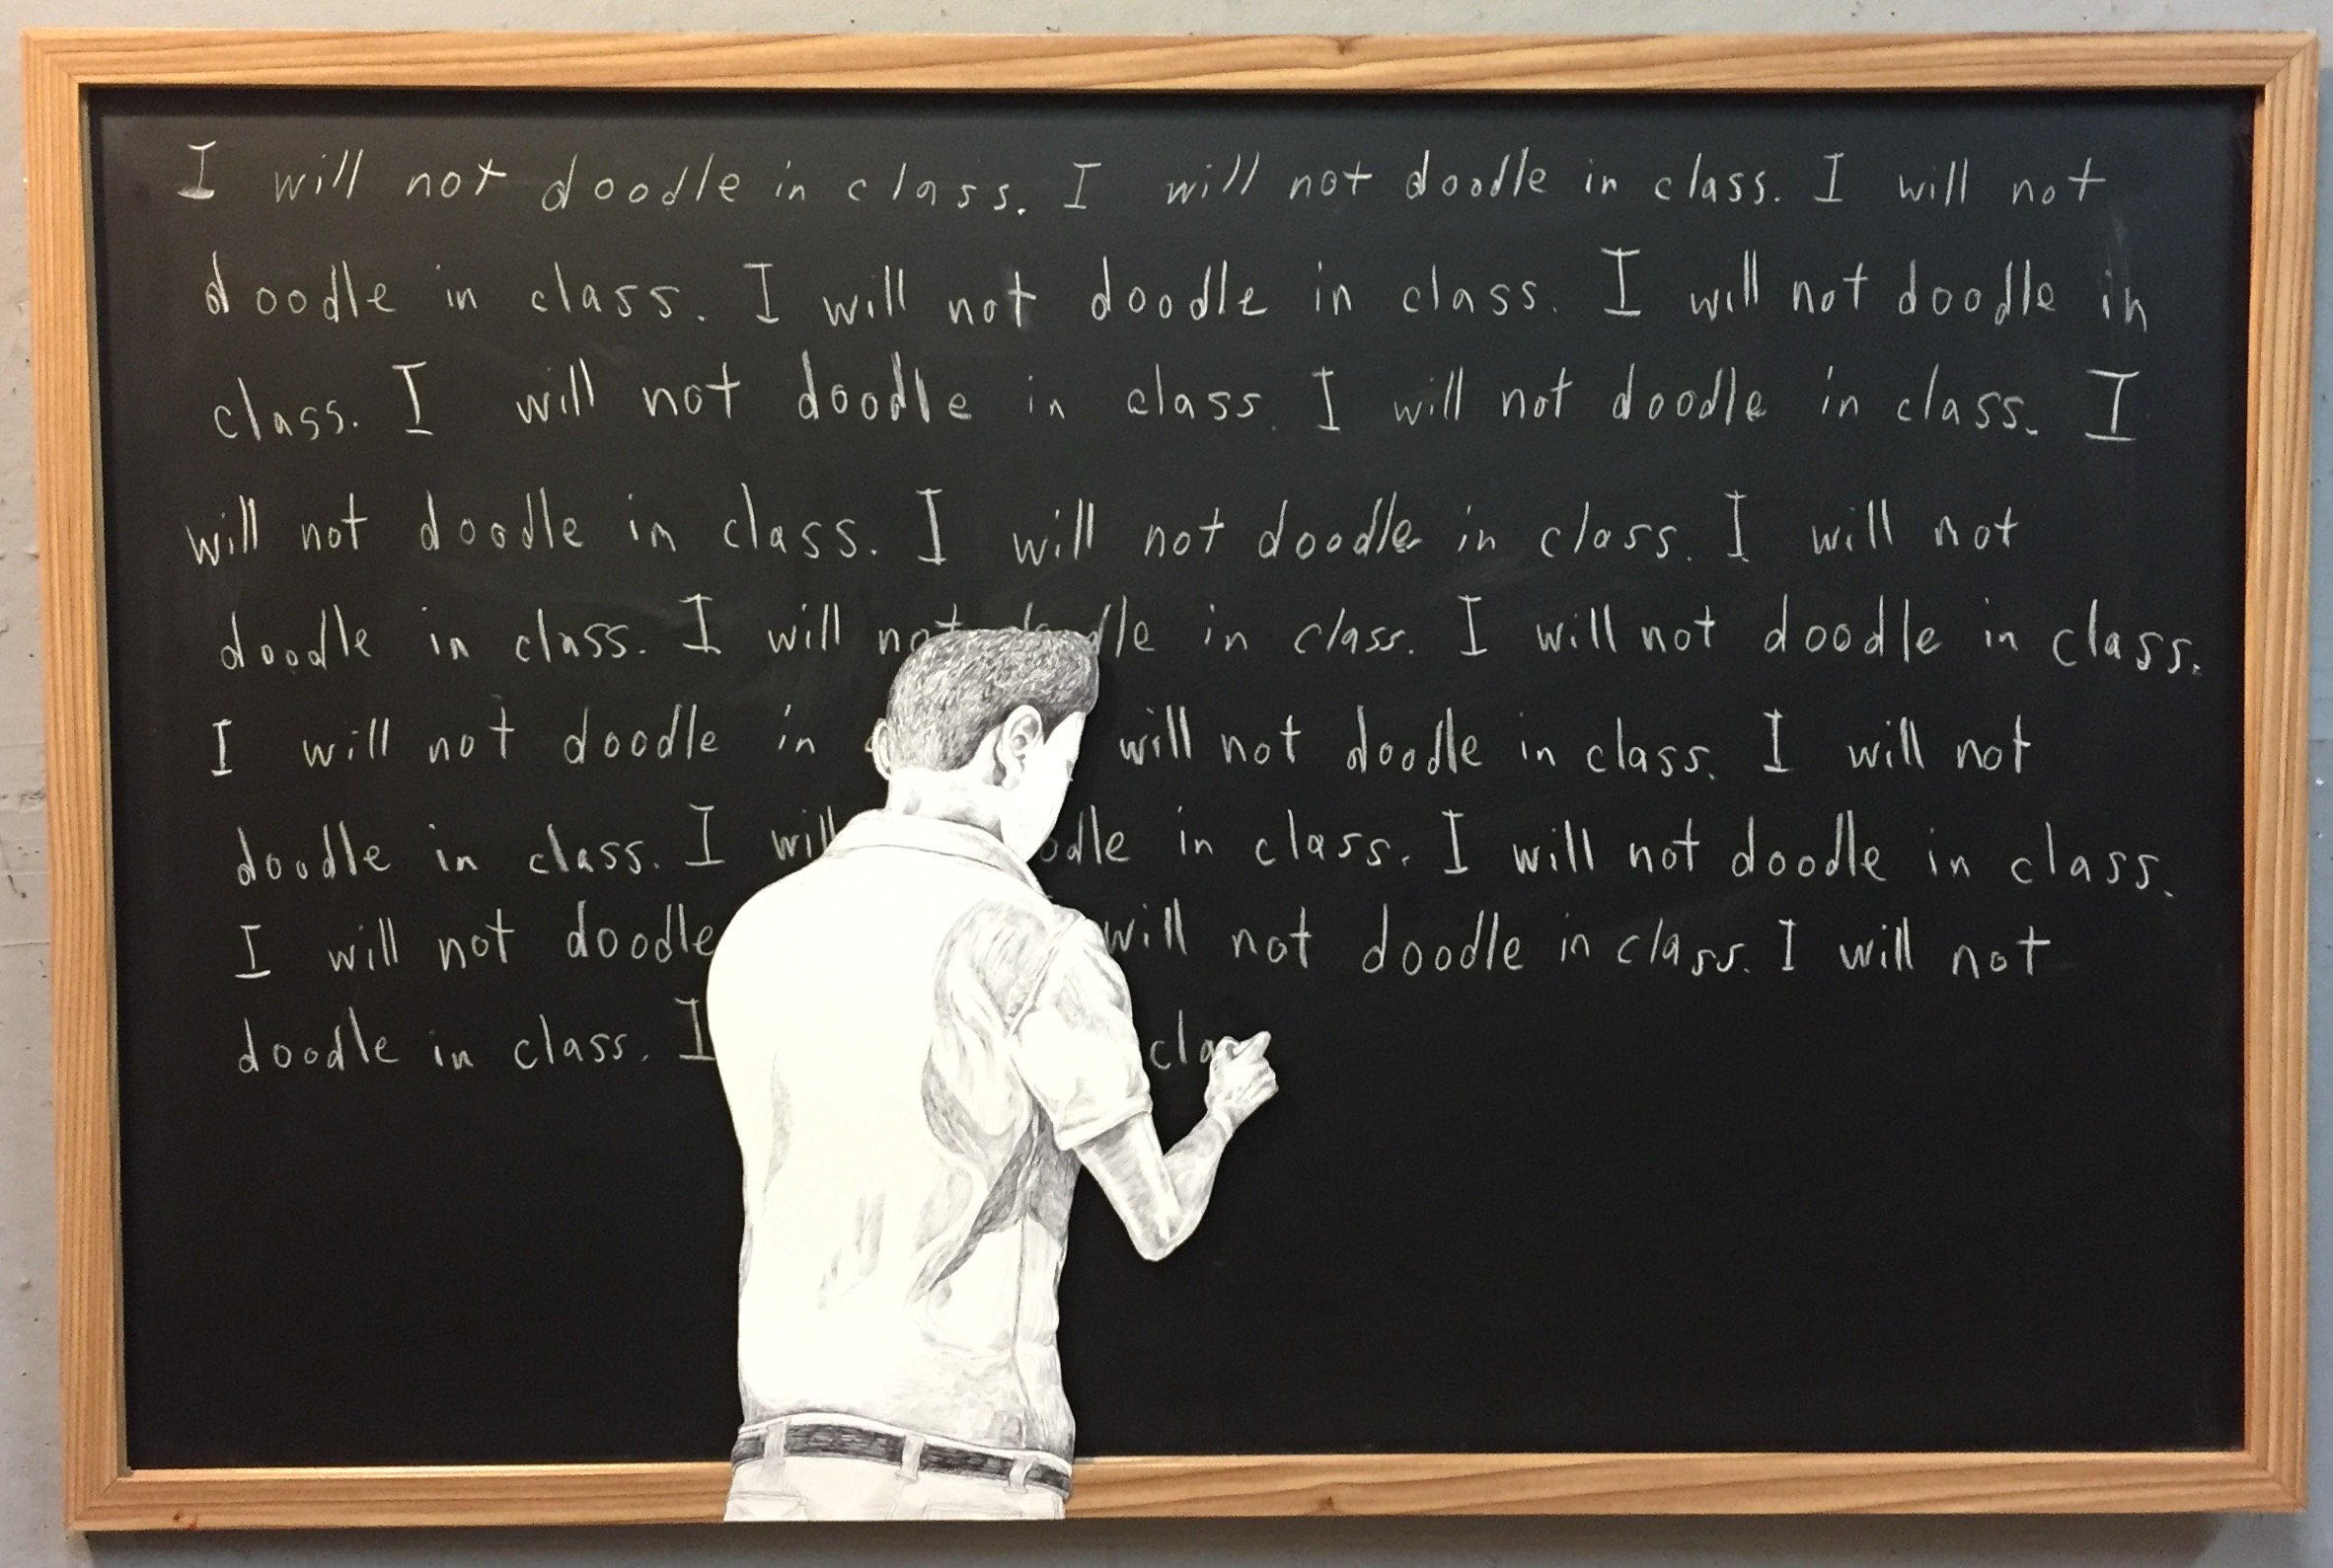 I will not doodle in class. I will not doodle in class. I will not
doodle in class. I will not doodle in class. I will not doodle in
class. I will not doodle in class. I will not doodle in class. I
will not doodle in class. I will not doodle in class. I will not
doodle in class. I will not doodle in class. I will not doodle in class.
I will not doodle in will not doodle in class. I will not
doodle in class. I will in class. I will not doodle in class.
I will not doodle will not doodle in class. I will not
doodle in class. I